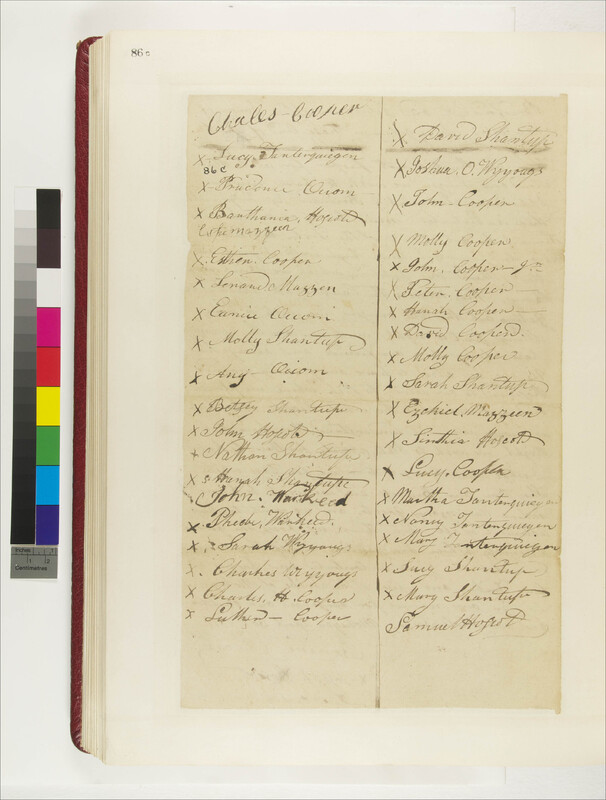 86c
Chales Cooper
X Lucy Tantenquigen
86c
X Prudence Occom
X Banthania Hoscott
Es. Mazzeen
X Esther Cooper
X Lenard Mazzen
X Eunice Occom
X Molly Shantup
X Any Occom
X Betsey Shantup
X John Hoscott
X Nathan Shantup
X Hanah Shantupe
John Warkeed
X Phebe Warkeed.
X Sarah Wyyougs
X Charles Wyyougs
X Charles H Cooper
X Luther Cooper
X David Shantup
X Joshua O. Wyyougs
X John Cooper
X Molly Cooper
X John Cooper Jr
X Peter Cooper
X Hanah Cooper
X David Cooper
X Molly Cooper
X Sarah Shantup
X Ezekiel Mazzeen
X Sinthia Hoscott
X Lucy Cooper
X Martha Tantenquiegen
X Nancy Tantenquiegen
X Mary Tantenquigen
X Lucy Shantup
X Mary Shantup
Samuel Hoscott
inches
Centimetres